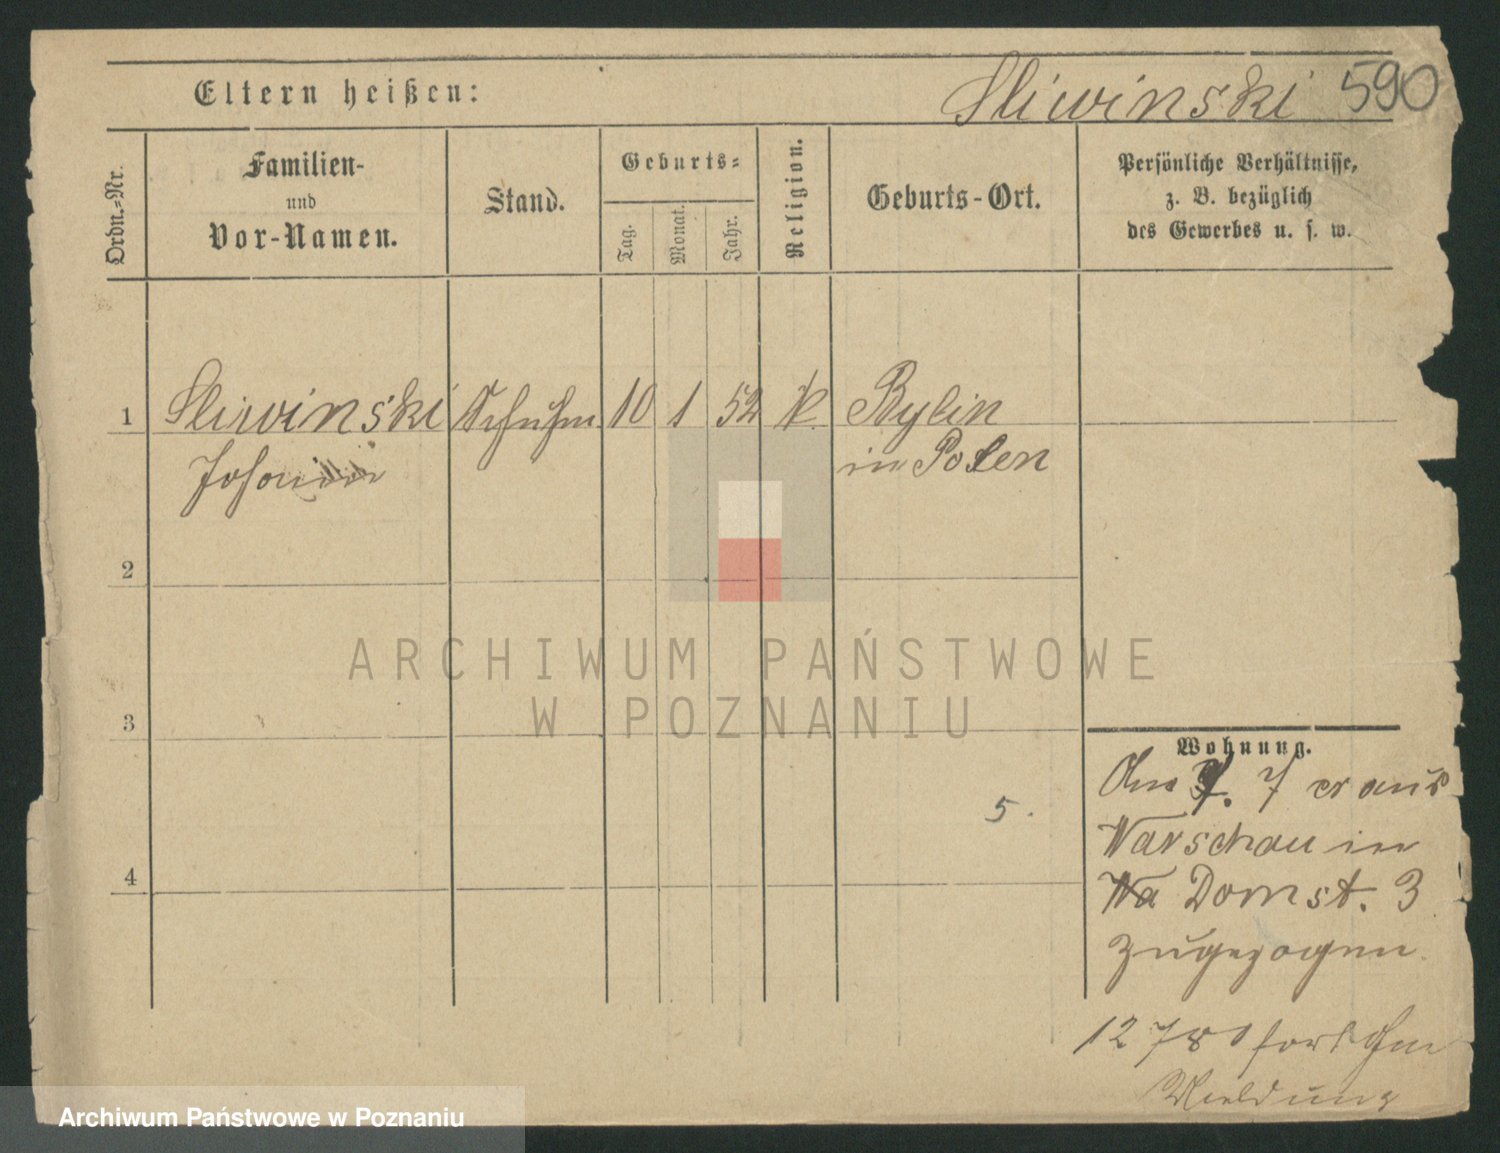 Eltern heißen: Sliwinski 590
Ordn.-Nr.
Familien-
und
Vor-Namen.
Stand.
Geburts-
Tag.
Monat.
Jahr.
Religion.
Geburts-Ort.
Persönliche Verhältnisse,
z. B. bezüglich
des Gewerbes u. s. w.
1 Sliwinski Schuhm 10 1 52 K. Rylin
in Polen
2
3
4
ARCHIWUM PAŃSTWOWE
W POZNANIU
Wohnung.
5.
7 er aus
Warschau in
Wa Domst. 3
zugezogen
12 7 81 fort
Meldung
Archiwum Państwowe w Poznaniu